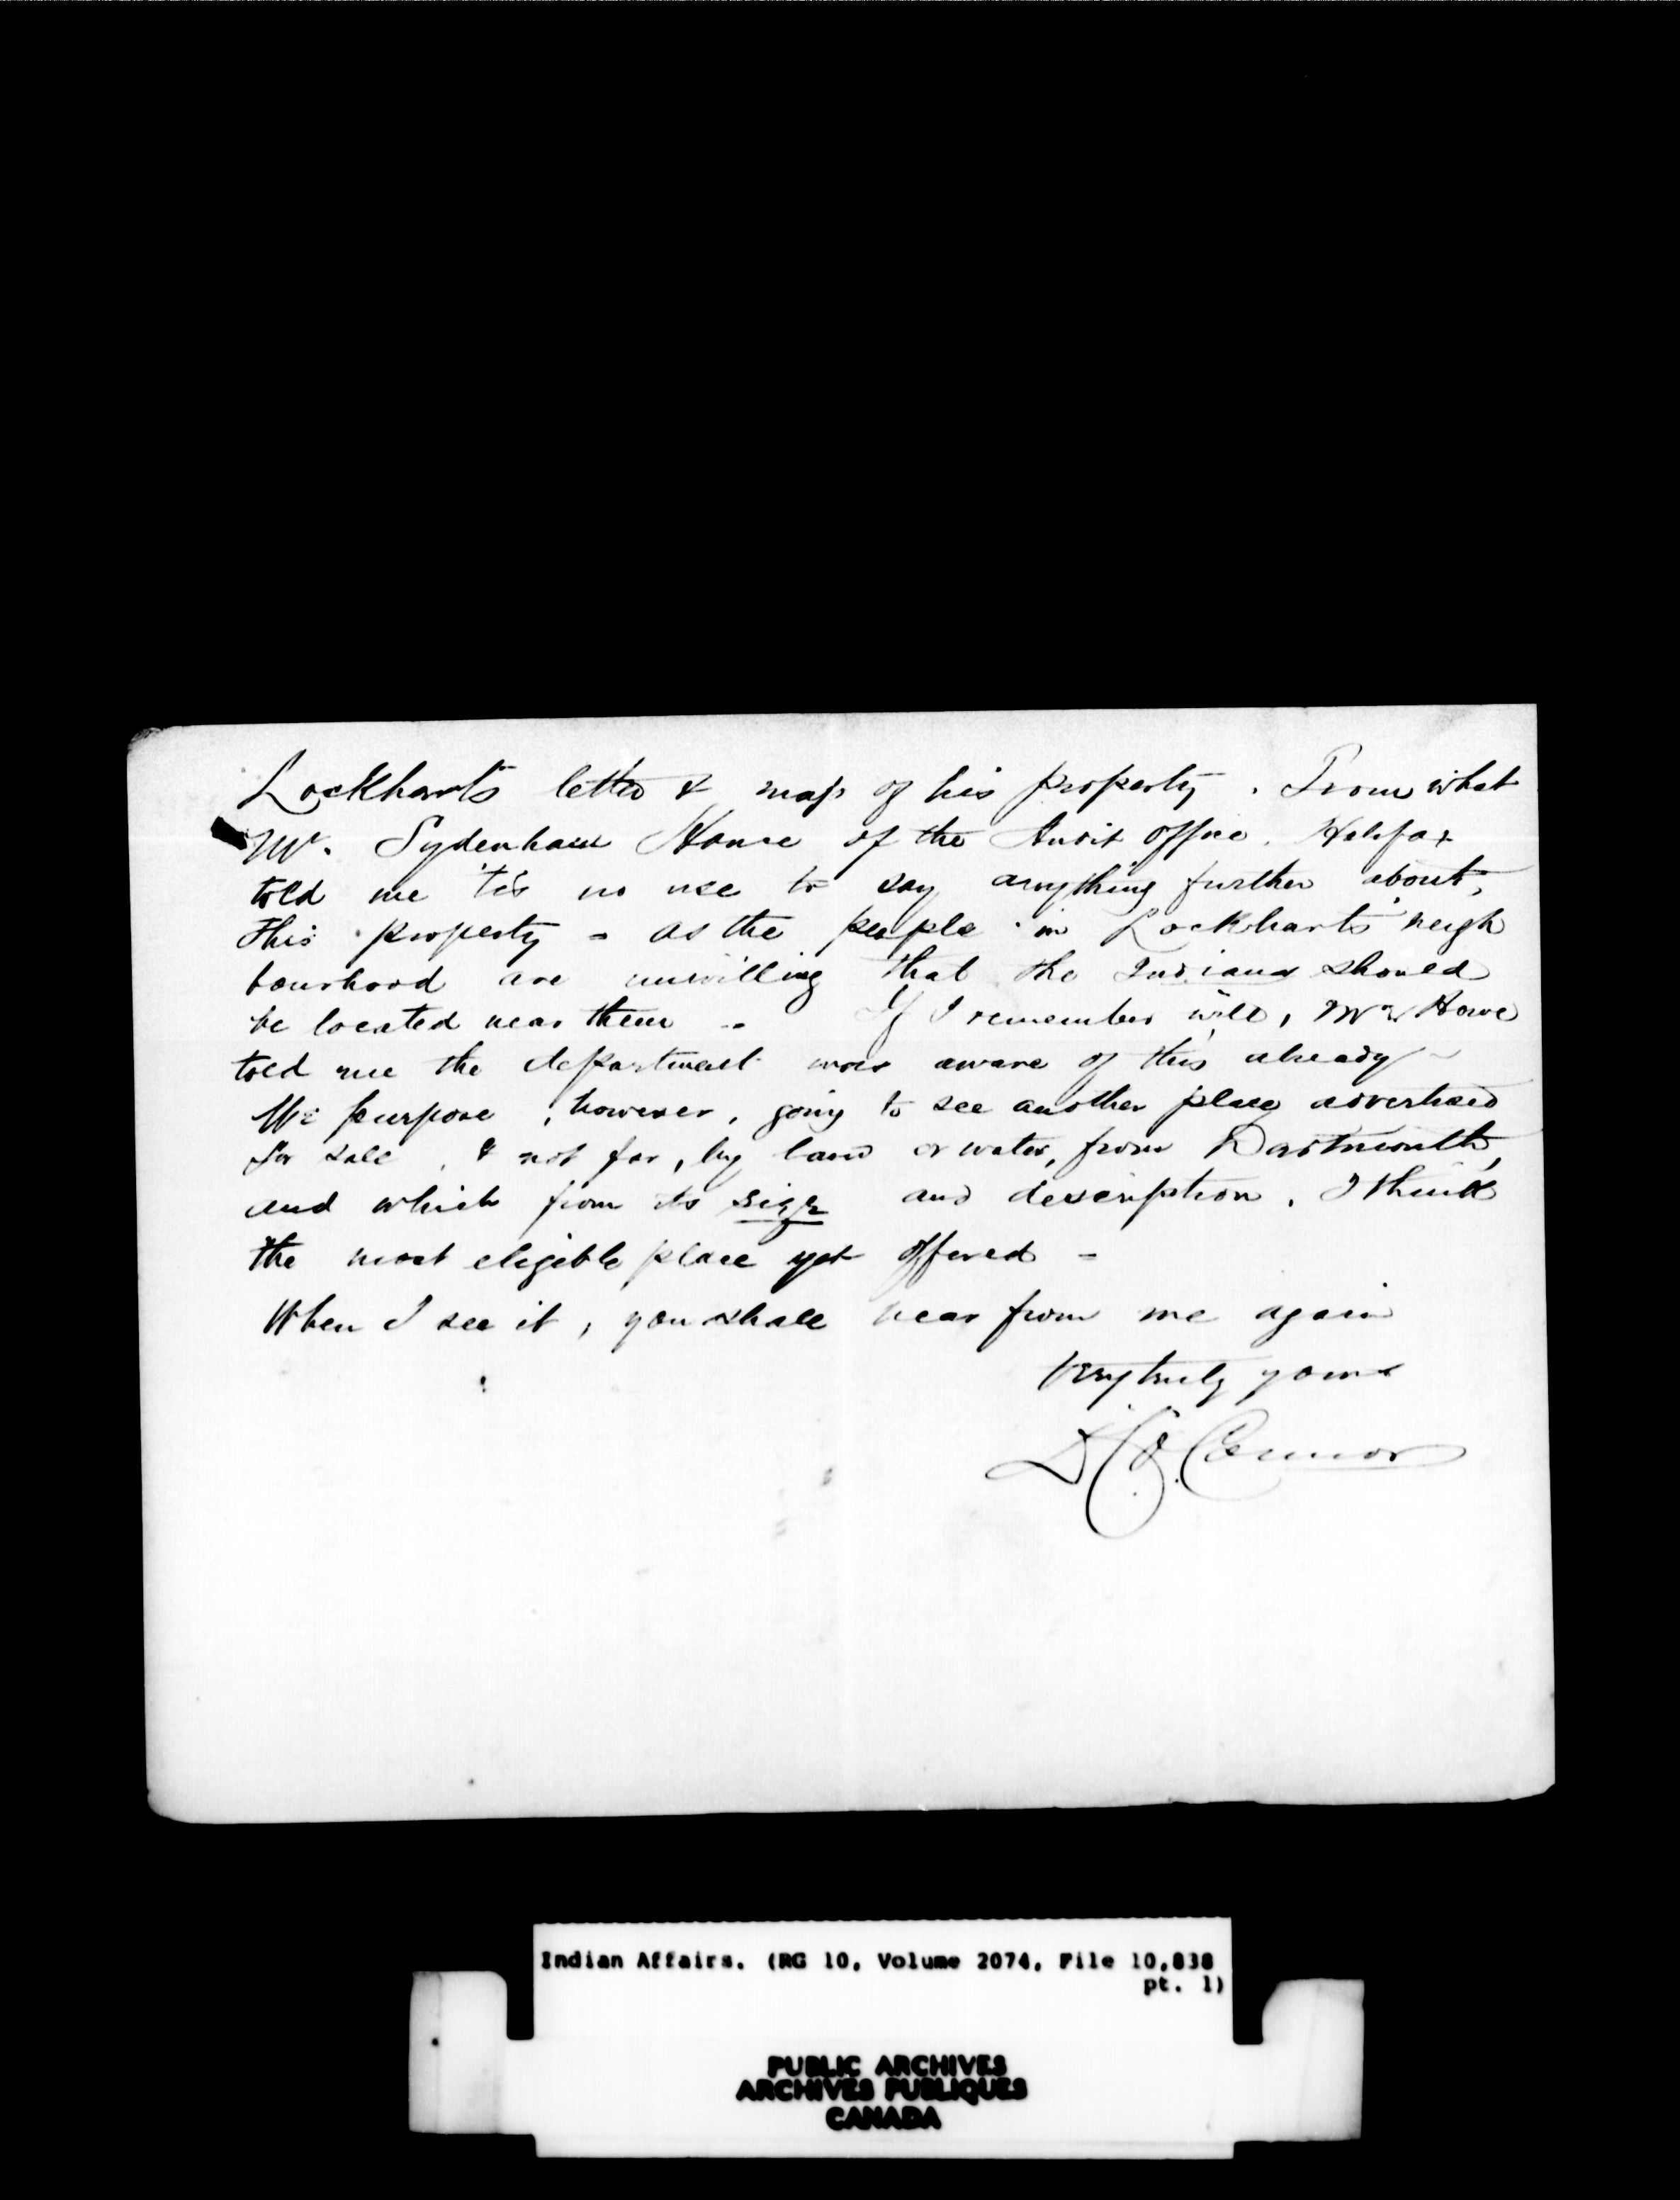 Lockharts letter & map of his property. From what
Mr. Sydenham Howe of the Audit Office, Halifax
told me 'tis no use to say anything further about,
this property - as the people in Lockharts neigh
bourhood are unwilling that the Indians should
be located near them - If I remember well, Mr Howe
told me the department was aware of this already -
We purpose, however, going to see another place advertised
for sale, & not far, by land or water, from Dartmouth,
and which from its size and description, I think
the most eligible place yet offered -
When I see it, you shall hear from me again
Very truly yours
D. O'Connor
Indian Affairs. (RG 10, Volume 2074, File 10,838
pt. 1)
PUBLIC ARCHIVES
ARCHIVES PUBLIQUES
CANADA